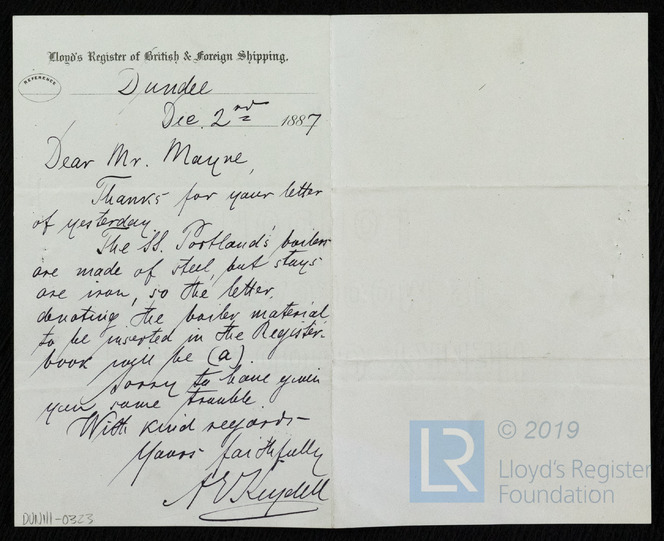 Lloyd's Register of British & Foreign Shipping.
REFERENCE
Dundee
Dec. 2nd 1887
Dear Mr. Mayne,
Thanks for your letter
of yesterday.
The SS. Portland's boilers
are made of steel, but stays
are iron, so the letter,
denoting the boiler material
to be inserted in the Register
book will be (a).
Sorry to have given
you some trouble.
With kind regards
Yours faithfully
DUN111-0323
LR
© 2019
Lloyd's Register
Foundation